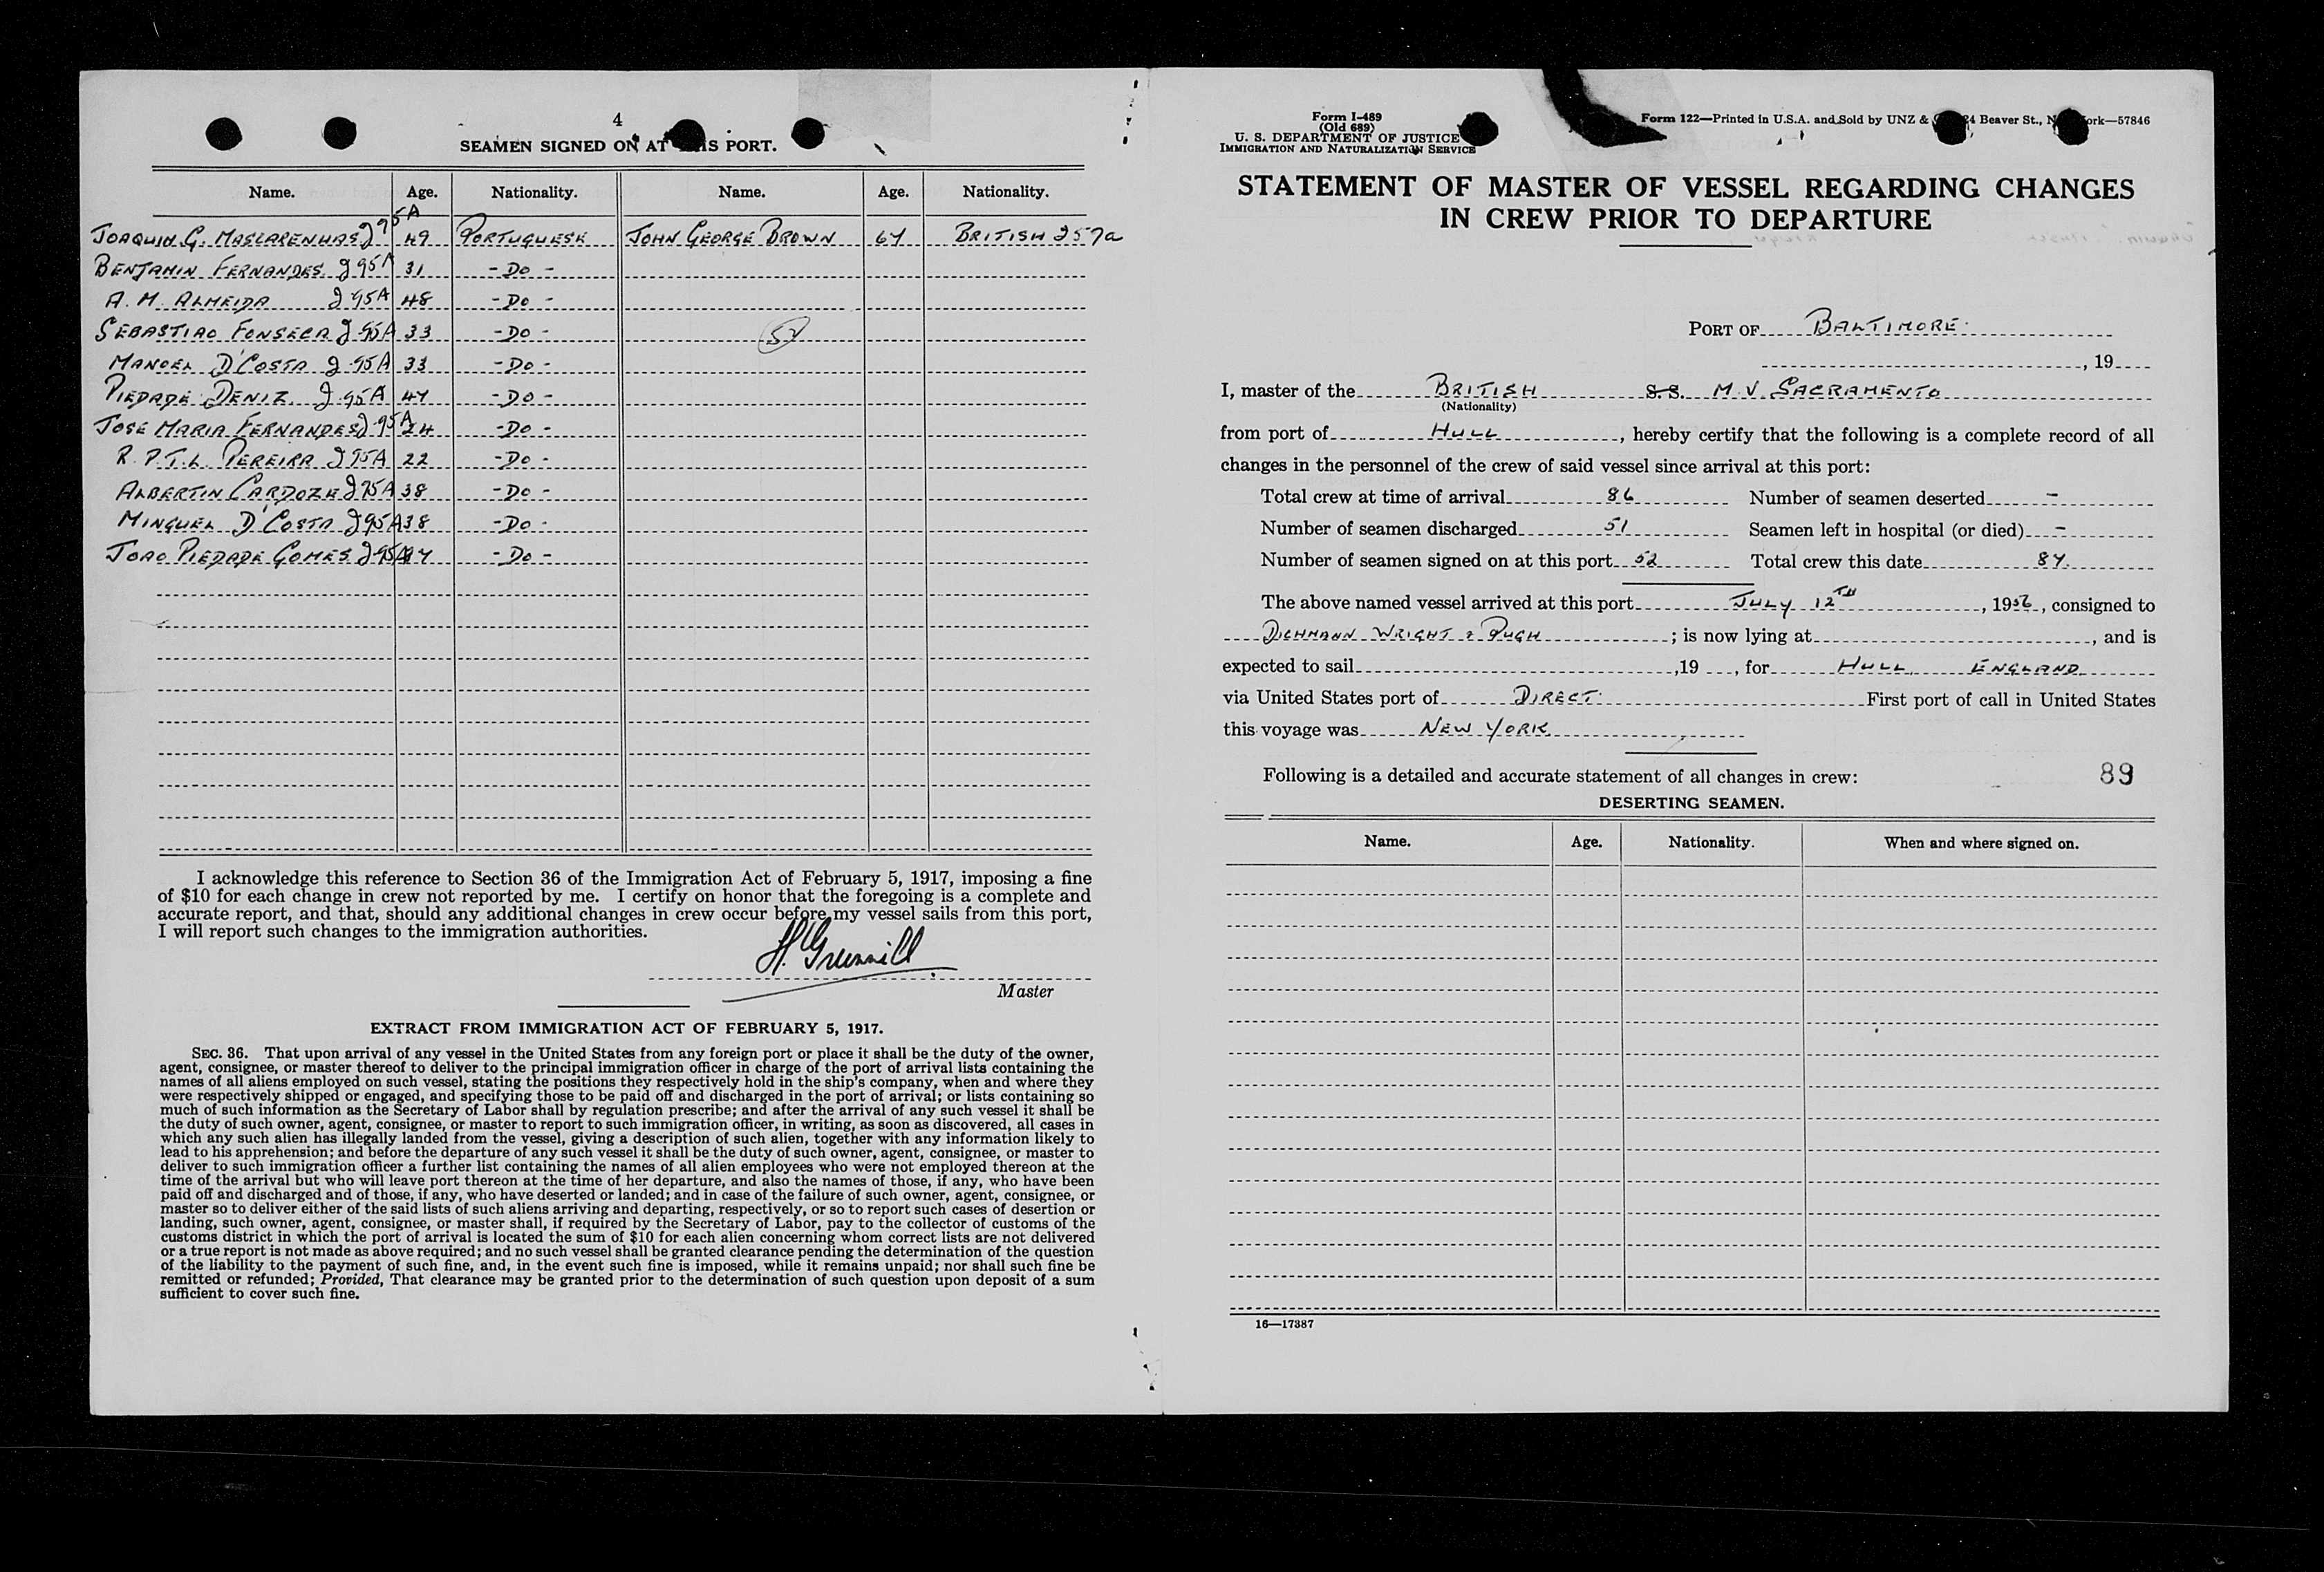 4
SEAMEN SIGNED ON AT THIS PORT.
Name. Age. Nationality. Name. Age. Nationality.
JOAQUIM G. MASCARENHAS I 95A 49 PORTUGUESE JOHN GEORGE BROWN 64 BRITISH 257a
BENJAMIN FERNANDES I 95A 31 - DO -
A. M. ALMEIDA I 95A 48 - DO -
SEBASTIAO FONSECA I 95A 33 - DO - 52
MANOEL D'COSTA I 95A 33 - DO -
PIEDADE DENIZ I 95A 47 - DO -
JOSE MARIA FERNANDES I 95A 24 - DO -
R. P. T. L. PEREIRA I 95A 22 - DO -
ALBERTIN CARDOZE I 95A 38 - DO -
MINGUEL D'COSTA I 95A 38 - DO -
JOAO PIEDADE GOMES I 95A - DO -
I acknowledge this reference to Section 36 of the Immigration Act of February 5, 1917, imposing a fine
of $10 for each change in crew not reported by me. I certify on honor that the foregoing is a complete and
accurate report, and that, should any additional changes in crew occur before my vessel sails from this port,
I will report such changes to the immigration authorities.
H. Grunnill
Master
EXTRACT FROM IMMIGRATION ACT OF FEBRUARY 5, 1917.
SEC. 36. That upon arrival of any vessel in the United States from any foreign port or place it shall be the duty of the owner,
agent, consignee, or master thereof to deliver to the principal immigration officer in charge of the port of arrival lists containing the
names of all aliens employed on such vessel, stating the positions they respectively hold in the ship's company, when and where they
were respectively shipped or engaged, and specifying those to be paid off and discharged in the port of arrival; or lists containing so
much of such information as the Secretary of Labor shall by regulation prescribe; and after the arrival of any such vessel it shall be
the duty of such owner, agent, consignee, or master to report to such immigration officer, in writing, as soon as discovered, all cases in
which any such alien has illegally landed from the vessel, giving a description of such alien, together with any information likely to
lead to his apprehension; and before the departure of any such vessel it shall be the duty of such owner, agent, consignee, or master to
deliver to such immigration officer a further list containing the names of all alien employees who were not employed thereon at the
time of the arrival but who will leave port thereon at the time of her departure, and also the names of those, if any, who have been
paid off and discharged and of those, if any, who have deserted or landed; and in case of the failure of such owner, agent, consignee, or
master so to deliver either of the said lists of such aliens arriving and departing, respectively, or so to report such cases of desertion or
landing, such owner, agent, consignee, or master shall, if required by the Secretary of Labor, pay to the collector of customs of the
customs district in which the port of arrival is located the sum of $10 for each alien concerning whom correct lists are not delivered
or a true report is not made as above required; and no such vessel shall be granted clearance pending the determination of the question
of the liability to the payment of such fine, and, in the event such fine is imposed, while it remains unpaid; nor shall such fine be
remitted or refunded; Provided, That clearance may be granted prior to the determination of such question upon deposit of a sum
sufficient to cover such fine.
Form I-489
(Old 689)
U. S. DEPARTMENT OF JUSTICE
IMMIGRATION AND NATURALIZATION SERVICE
Form 122—Printed in U.S.A. and Sold by UNZ & 24 Beaver St., New York—57846
STATEMENT OF MASTER OF VESSEL REGARDING CHANGES
IN CREW PRIOR TO DEPARTURE
PORT OF BALTIMORE.
, 19
I, master of the BRITISH S.S. M.V. SACRAMENTO
(Nationality)
from port of HULL, hereby certify that the following is a complete record of all
changes in the personnel of the crew of said vessel since arrival at this port:
Total crew at time of arrival 86 Number of seamen deserted -
Number of seamen discharged 51 Seamen left in hospital (or died) -
Number of seamen signed on at this port 52 Total crew this date 87.
The above named vessel arrived at this port JULY 12TH, 1956, consigned to
DICHMANN WRIGHT & PUGH; is now lying at , and is
expected to sail ,19 , for HULL, ENGLAND
via United States port of DIRECT. First port of call in United States
this voyage was NEW YORK
Following is a detailed and accurate statement of all changes in crew:
89
DESERTING SEAMEN.
Name. Age. Nationality. When and where signed on.
16—17387